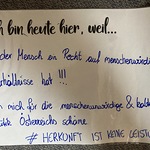 ch bin heute hier, weil...
der Mensch ein Recht auf menschenwürdige
hältnisse hat !!!
h mich für die menschenunwürdige & kalte
litik Österreichs schäme
# HERKUNFT IST KEINE LEISTUN